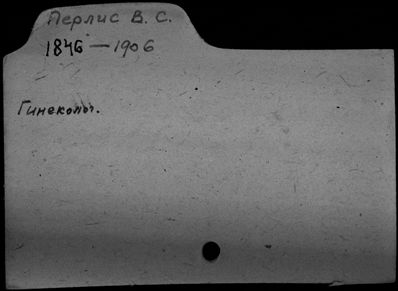 Перлис В. С.
1846 — 1906
Гинеколог.